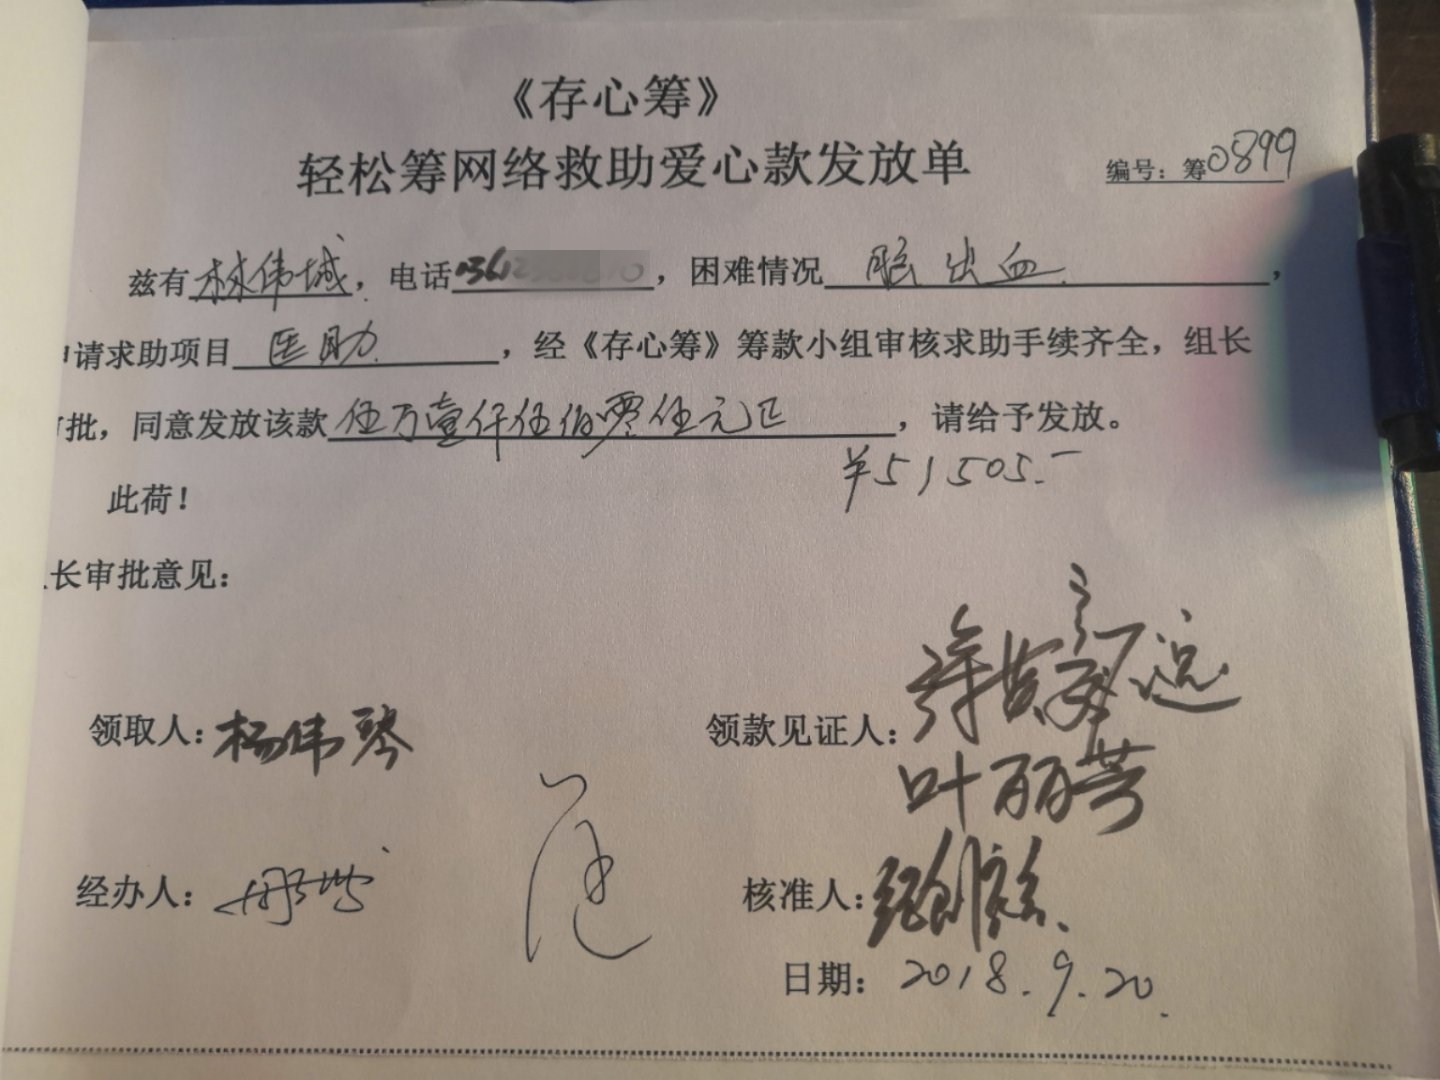 《存心筹》
轻松筹网络救助爱心款发放单
编号：筹0899
兹有林伟城，电话，困难情况脑出血，
请求助项目医助，经《存心筹》筹款小组审核求助手续齐全，组长
批，同意发放该款伍万壹仟伍佰零伍元正，请给予发放。
¥51505.-
此荷！
长审批意见：
领取人：杨伟琴
领款见证人：
叶丽芳
经办人：
核准人：
日期：2018.9.20.